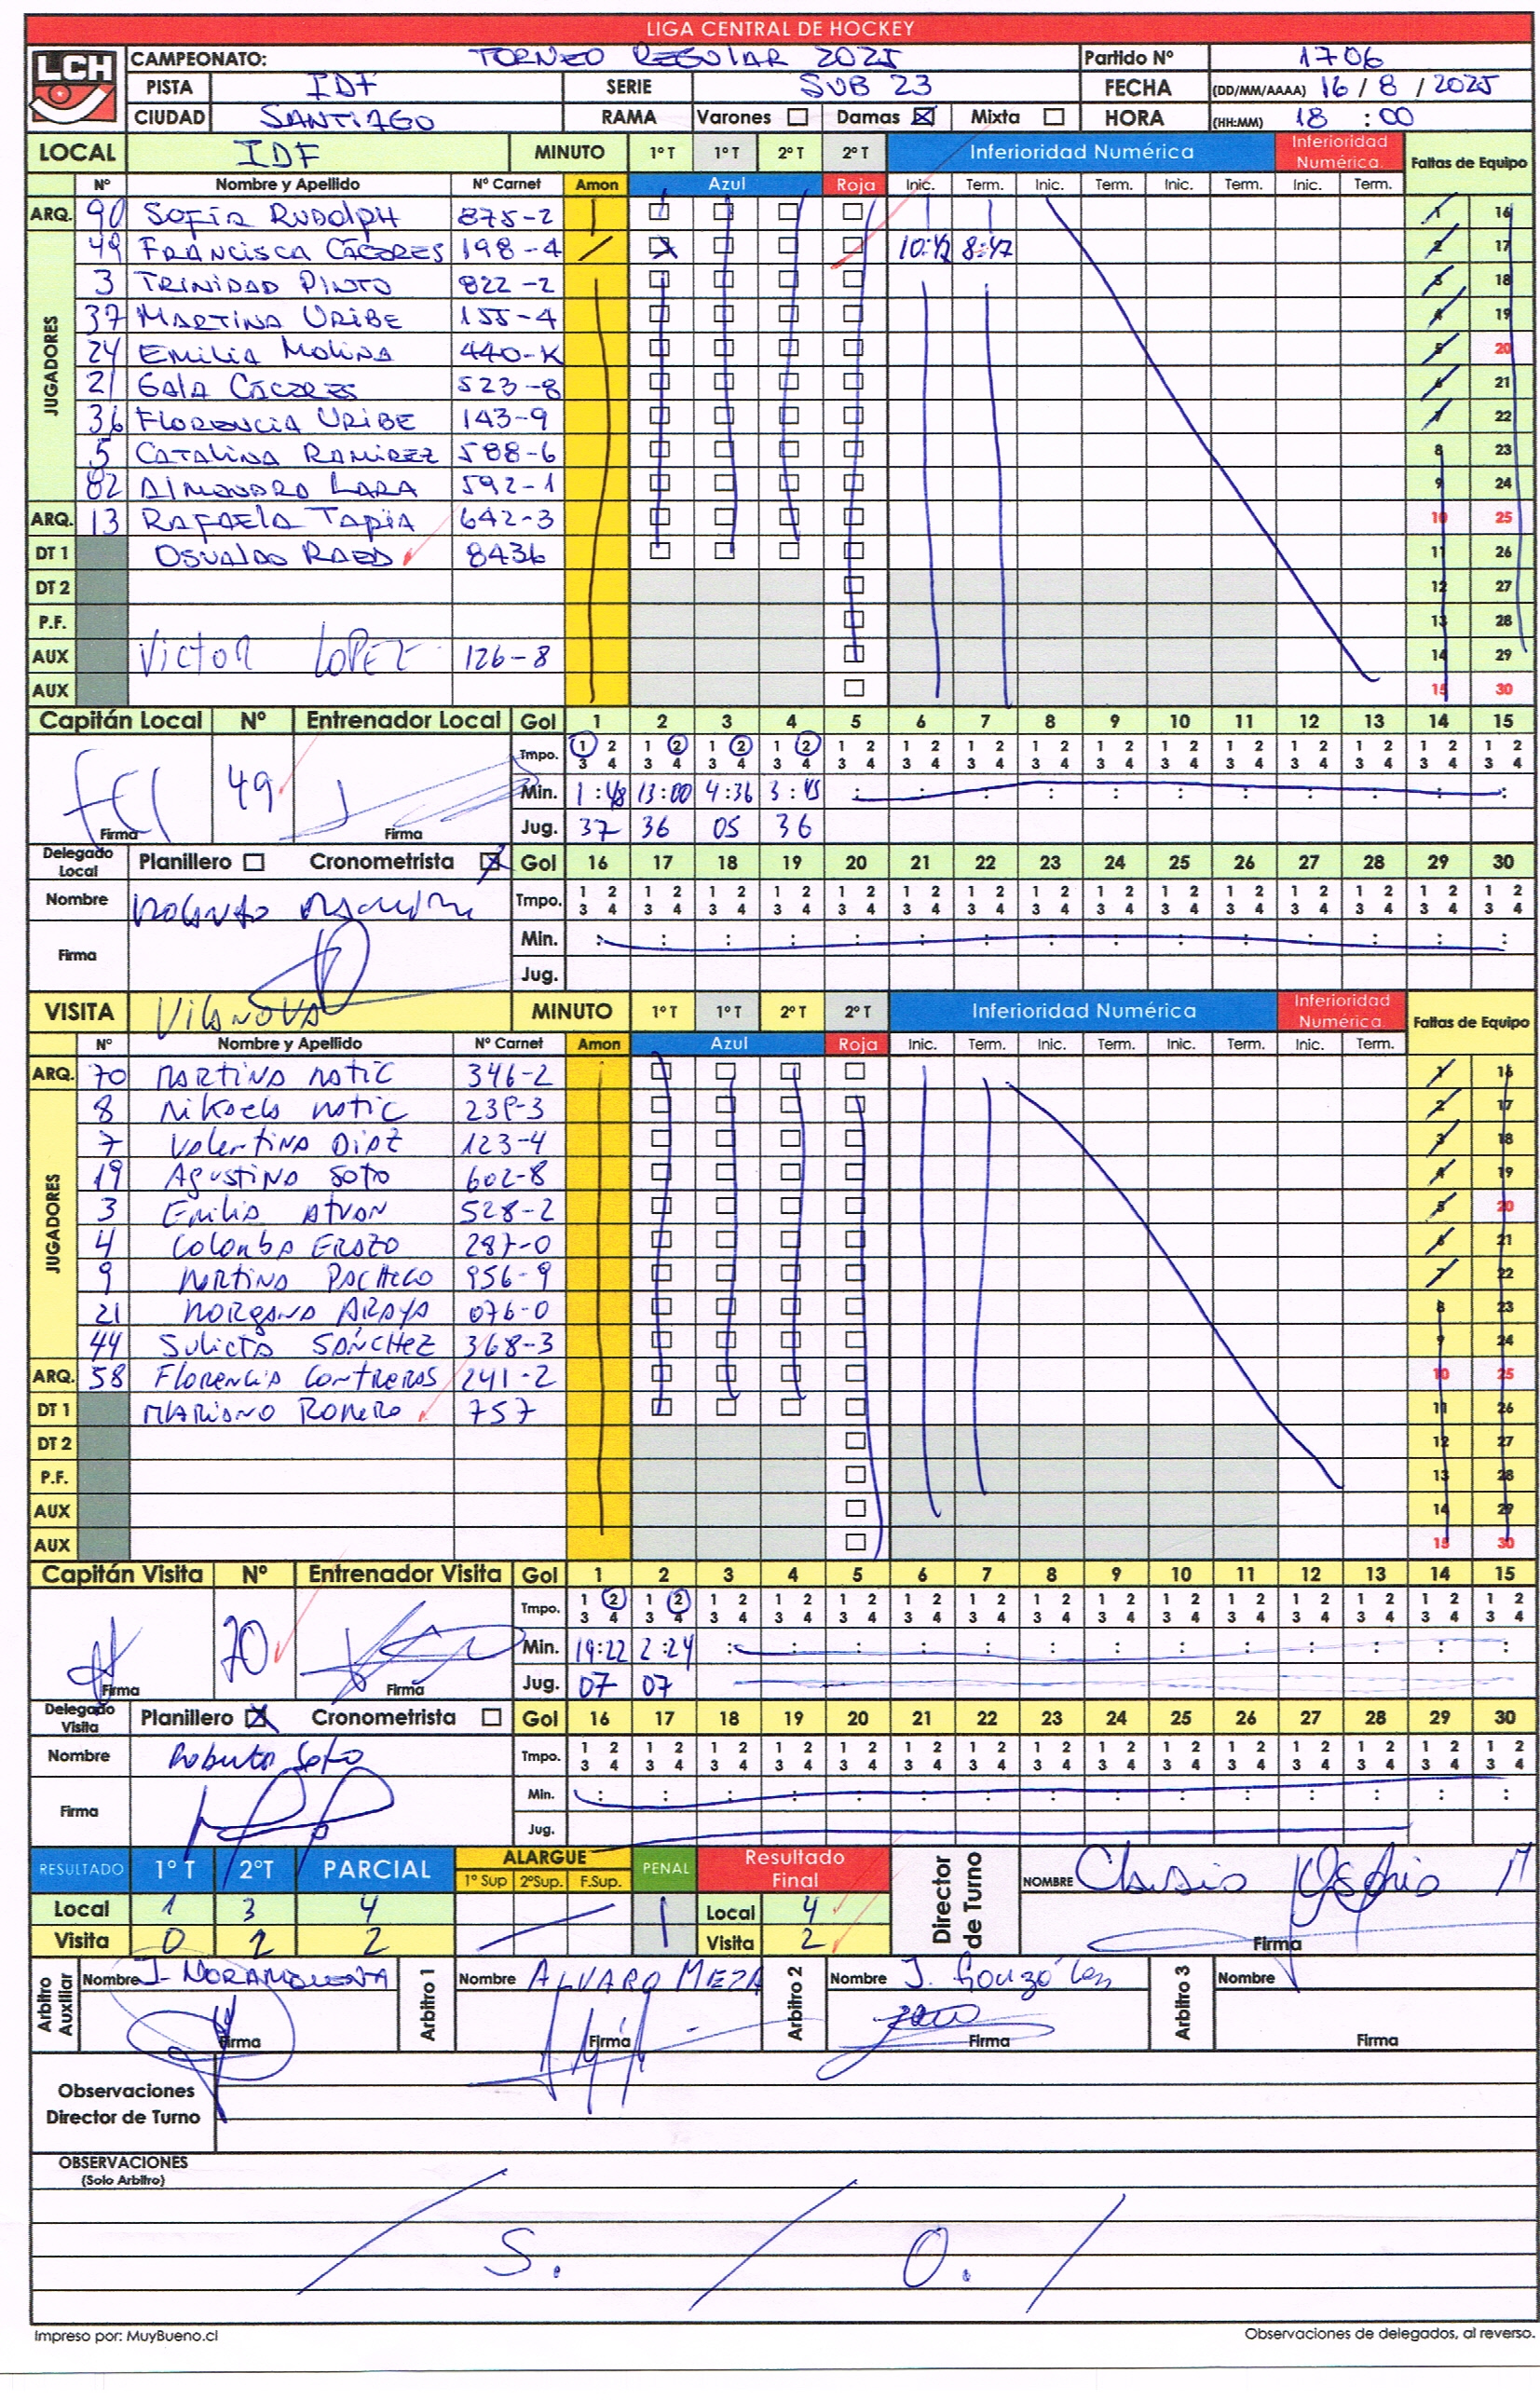 LIGA CENTRAL DE HOCKEY
LCH
CAMPEONATO: TORNEO REGULAR 2025 Partido Nº 1706
PISTA IDF SERIE SUB 23 FECHA (DD/MM/AAAA) 16 / 8 / 2025
CIUDAD SANTIAGO RAMA Varones Damas Mixta HORA (HH:MM) 18 : 00
LOCAL IDF MINUTO 1º T 1º T 2º T 2º T Inferioridad Numérica Inferioridad Numérica. Faltas de Equipo
Nº Nombre y Apellido Nº Carnet Amon Azul Roja Inic. Term. Inic. Term. Inic. Term. Inic. Term.
ARQ. 90 SOFÍA RUDOLPH 875-2 1 16
JUGADORES
49 FRANCISCA CÁCERES 198-4 10:42 8:47 2 17
3 TRINIDAD PINTO 822-2 3 18
37 MARTINA URIBE 155-4 4 19
24 EMILIA MOLINA 440-K 5 20
21 GALA CÁCERES 523-8 6 21
36 FLORENCIA URIBE 143-9 7 22
5 CATALINA RAMIREZ 588-6 8 23
82 ALMENDRA LARA 592-1 9 24
ARQ. 13 RAFAELA TAPIA 642-3 10 25
DT 1 OSVALDO RAED 8436 11 26
DT 2 12 27
P.F. 13 28
AUX VICTOR LOPEZ 126-8 14 29
AUX 15 30
Capitán Local Nº Entrenador Local Gol 1 2 3 4 5 6 7 8 9 10 11 12 13 14 15
Tmpo. 1 2 1 2 1 2 1 2 1 2 1 2 1 2 1 2 1 2 1 2 1 2 1 2 1 2 1 2 1 2
3 4 3 4 3 4 3 4 3 4 3 4 3 4 3 4 3 4 3 4 3 4 3 4 3 4 3 4 3 4
49 Min. 1:48 13:00 4:36 3:45 : : : : : : : : : : :
Firma Firma Jug. 37 36 05 36
Delegado Local Planillero Cronometrista Gol 16 17 18 19 20 21 22 23 24 25 26 27 28 29 30
Nombre Tmpo. 1 2 1 2 1 2 1 2 1 2 1 2 1 2 1 2 1 2 1 2 1 2 1 2 1 2 1 2 1 2
3 4 3 4 3 4 3 4 3 4 3 4 3 4 3 4 3 4 3 4 3 4 3 4 3 4 3 4 3 4
Firma Min. : : : : : : : : : : : : : : :
Jug.
VISITA VILANOVA MINUTO 1º T 1º T 2º T 2º T Inferioridad Numérica Inferioridad Numérica. Faltas de Equipo
Nº Nombre y Apellido Nº Carnet Amon Azul Roja Inic. Term. Inic. Term. Inic. Term. Inic. Term.
ARQ. 70 MARTINA MATIC 346-2 1 16
JUGADORES
8 Nikaela MATIC 239-3 2 17
7 Valentina DIAZ 123-4 3 18
19 Agustina SOTO 602-8 4 19
3 Emilia 528-2 5 20
4 Colomba ERAZO 287-0 6 21
9 MARTINA PACHECO 956-9 7 22
21 MORGANA ARAYA 076-0 8 23
44 Julieta SÁNCHEZ 368-3 9 24
ARQ. 58 FLORENCIA CONTRERAS 241-2 10 25
DT 1 MARIANO ROMERO 757 11 26
DT 2 12 27
P.F. 13 28
AUX 14 29
AUX 15 30
Capitán Visita Nº Entrenador Visita Gol 1 2 3 4 5 6 7 8 9 10 11 12 13 14 15
Tmpo. 1 2 1 2 1 2 1 2 1 2 1 2 1 2 1 2 1 2 1 2 1 2 1 2 1 2 1 2 1 2
3 4 3 4 3 4 3 4 3 4 3 4 3 4 3 4 3 4 3 4 3 4 3 4 3 4 3 4 3 4
70 Min. 19:22 2:24 : : : : : : : : : : : : :
Firma Firma Jug. 07 07
Delegado Visita Planillero Cronometrista Gol 16 17 18 19 20 21 22 23 24 25 26 27 28 29 30
Nombre Roberto Soto Tmpo. 1 2 1 2 1 2 1 2 1 2 1 2 1 2 1 2 1 2 1 2 1 2 1 2 1 2 1 2 1 2
3 4 3 4 3 4 3 4 3 4 3 4 3 4 3 4 3 4 3 4 3 4 3 4 3 4 3 4 3 4
Firma Min. : : : : : : : : : : : : : : :
Jug.
RESULTADO 1º T 2ºT PARCIAL ALARGUE 1º Sup 2ºSup. F.Sup. PENAL Resultado Final Director de Turno NOMBRE
Local 1 3 4 Local 4
Visita 0 2 2 Visita 2 Firma
Arbitro Auxiliar Nombre J. NORAMBUENA Arbitro 1 Nombre ALVARO MEZA Arbitro 2 Nombre J. González Arbitro 3 Nombre
Firma Firma Firma Firma
Observaciones
Director de Turno
OBSERVACIONES
(Solo Arbitro)
/ S. / O. /
Impreso por: MuyBueno.cl Observaciones de delegados, al reverso.